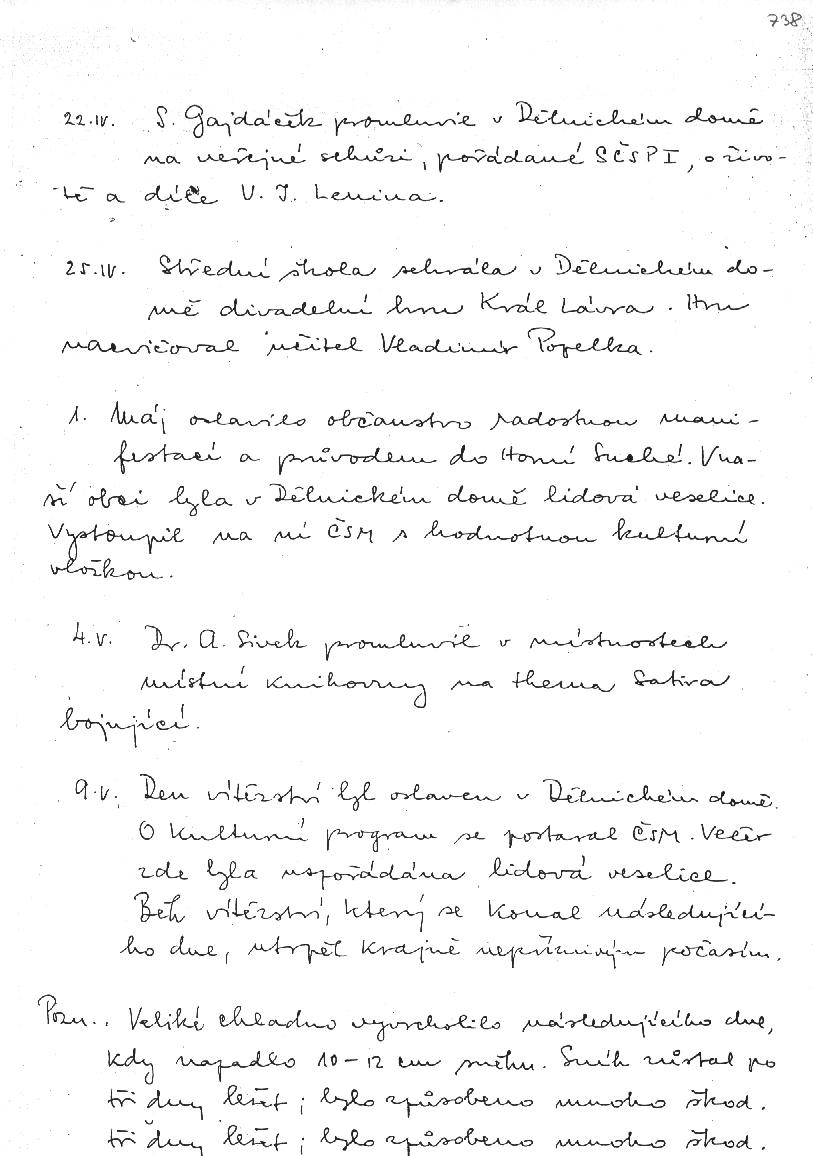 738
22.IV. S. Gajdáček promluvil v Dělnickém domě
na veřejné schůzi, pořádané SČSPI, o živo-
tě a díle V. J. Lenina.
25.IV. Střední škola sehrála v Dělnickém do-
mě divadelní hru Král Lávra. Hru
nacvičoval učitel Vladimír Popelka.
1. Máj oslavilo občanstvo radostnou mani-
festací a průvodem do Horní Suché. V na-
ší obci byla v Dělnickém domě lidová veselice.
Vystoupil na ní ČSM s hodnotnou kulturní
vložkou.
4.V. Dr. A. Sivek promluvil v místnostech
místní knihovny na thema Satira
bojující.
9.V. Den vítězství byl oslaven v Dělnickém domě.
O kulturní program se postaral ČSM. Večer
zde byla uspořádána lidová veselice.
Běh vítězství, který se konal následující-
ho dne, utrpěl krajně nepříznivým počasím.
Pozn.. Veliké chladno vyvrcholilo následujícího dne,
kdy napadlo 10-12 cm sněhu. Sníh zůstal po
tři dny ležet; bylo způsobeno mnoho škod.
tři dny ležet; bylo způsobeno mnoho škod.